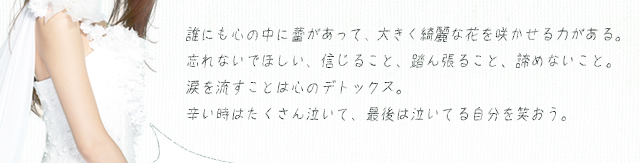 誰にも心の中に蕾があって、大きく綺麗な花を咲かせる力がある。
忘れないでほしい、信じること、踏ん張ること、諦めないこと。
涙を流すことは心のデトックス。
辛い時はたくさん泣いて、最後は泣いてる自分を笑おう。